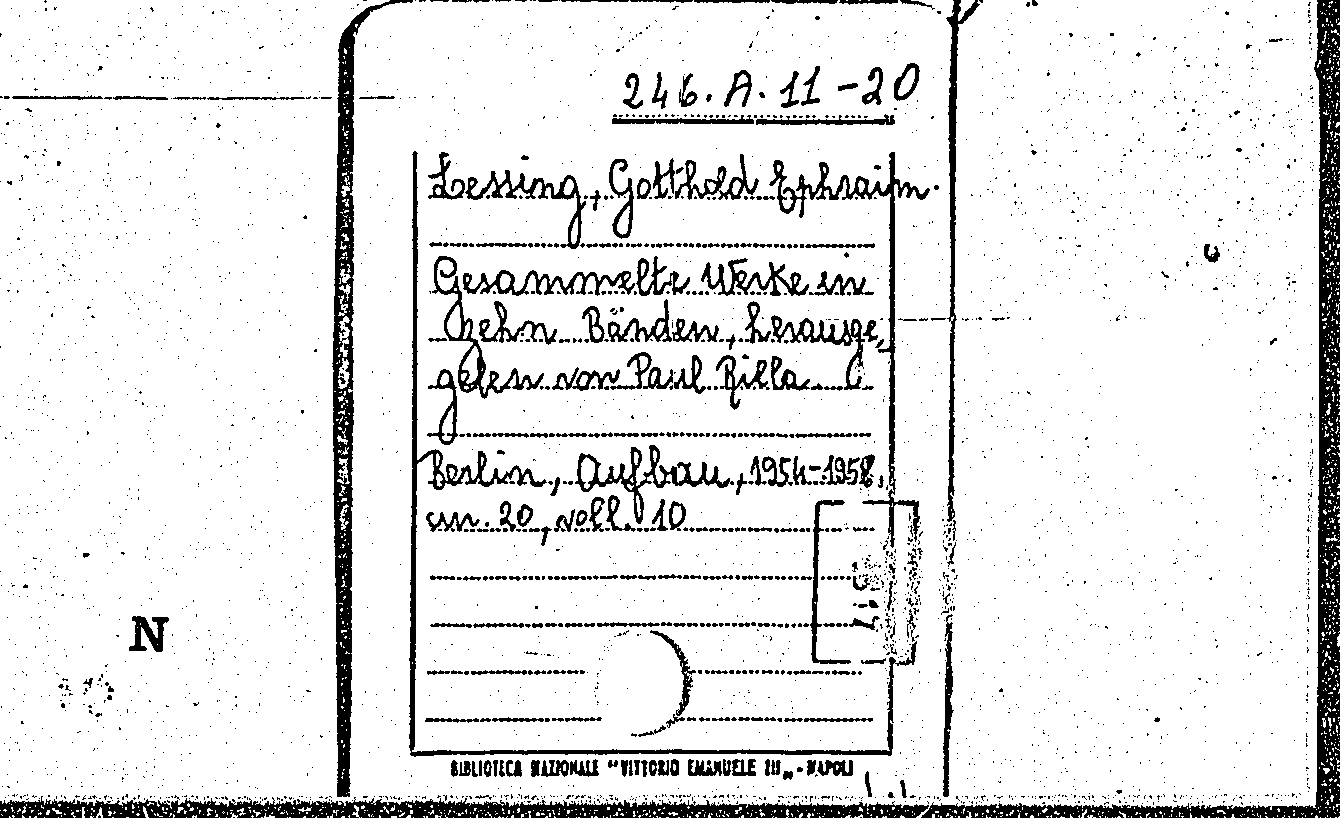 246.A.11-20
Lessing, Gotthold Ephraim.
Gesammelte Werke in
zehn Bänden, herausge,
geben von Paul Rilla.
Berlin, Aufbau, 1954-1958.
in 20, voll. 10
N
BIBLIOTECA NAZIONALE "VITTORIO EMANUELE III„ - NAPOLI